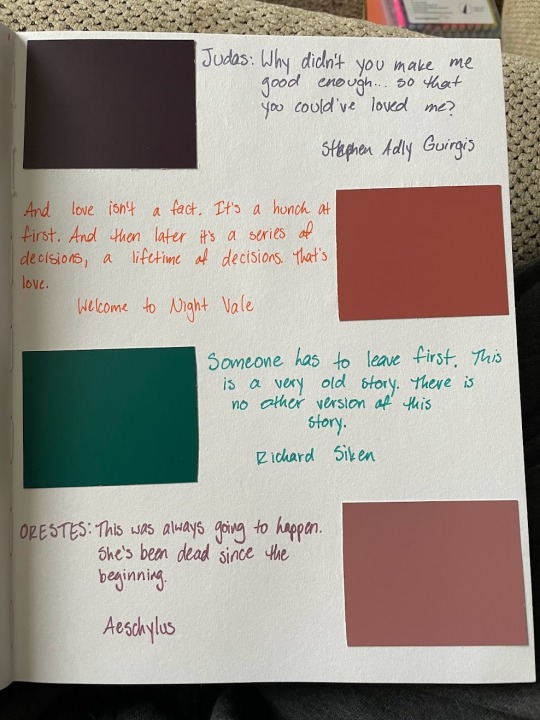 Judas: Why didn't you make me
good enough... so that
you could've loved me?
Stephen Adly Guirgis
And love isn't a fact. It's a hunch at
first. And then later it's a series of
decisions, a lifetime of decisions. That's
love.
Welcome to Night Vale
Someone has to leave first. This
is a very old story. There is
no other version of this
story.
Richard Siken
ORESTES: This was always going to happen.
She's been dead since the
beginning.
Aeschylus